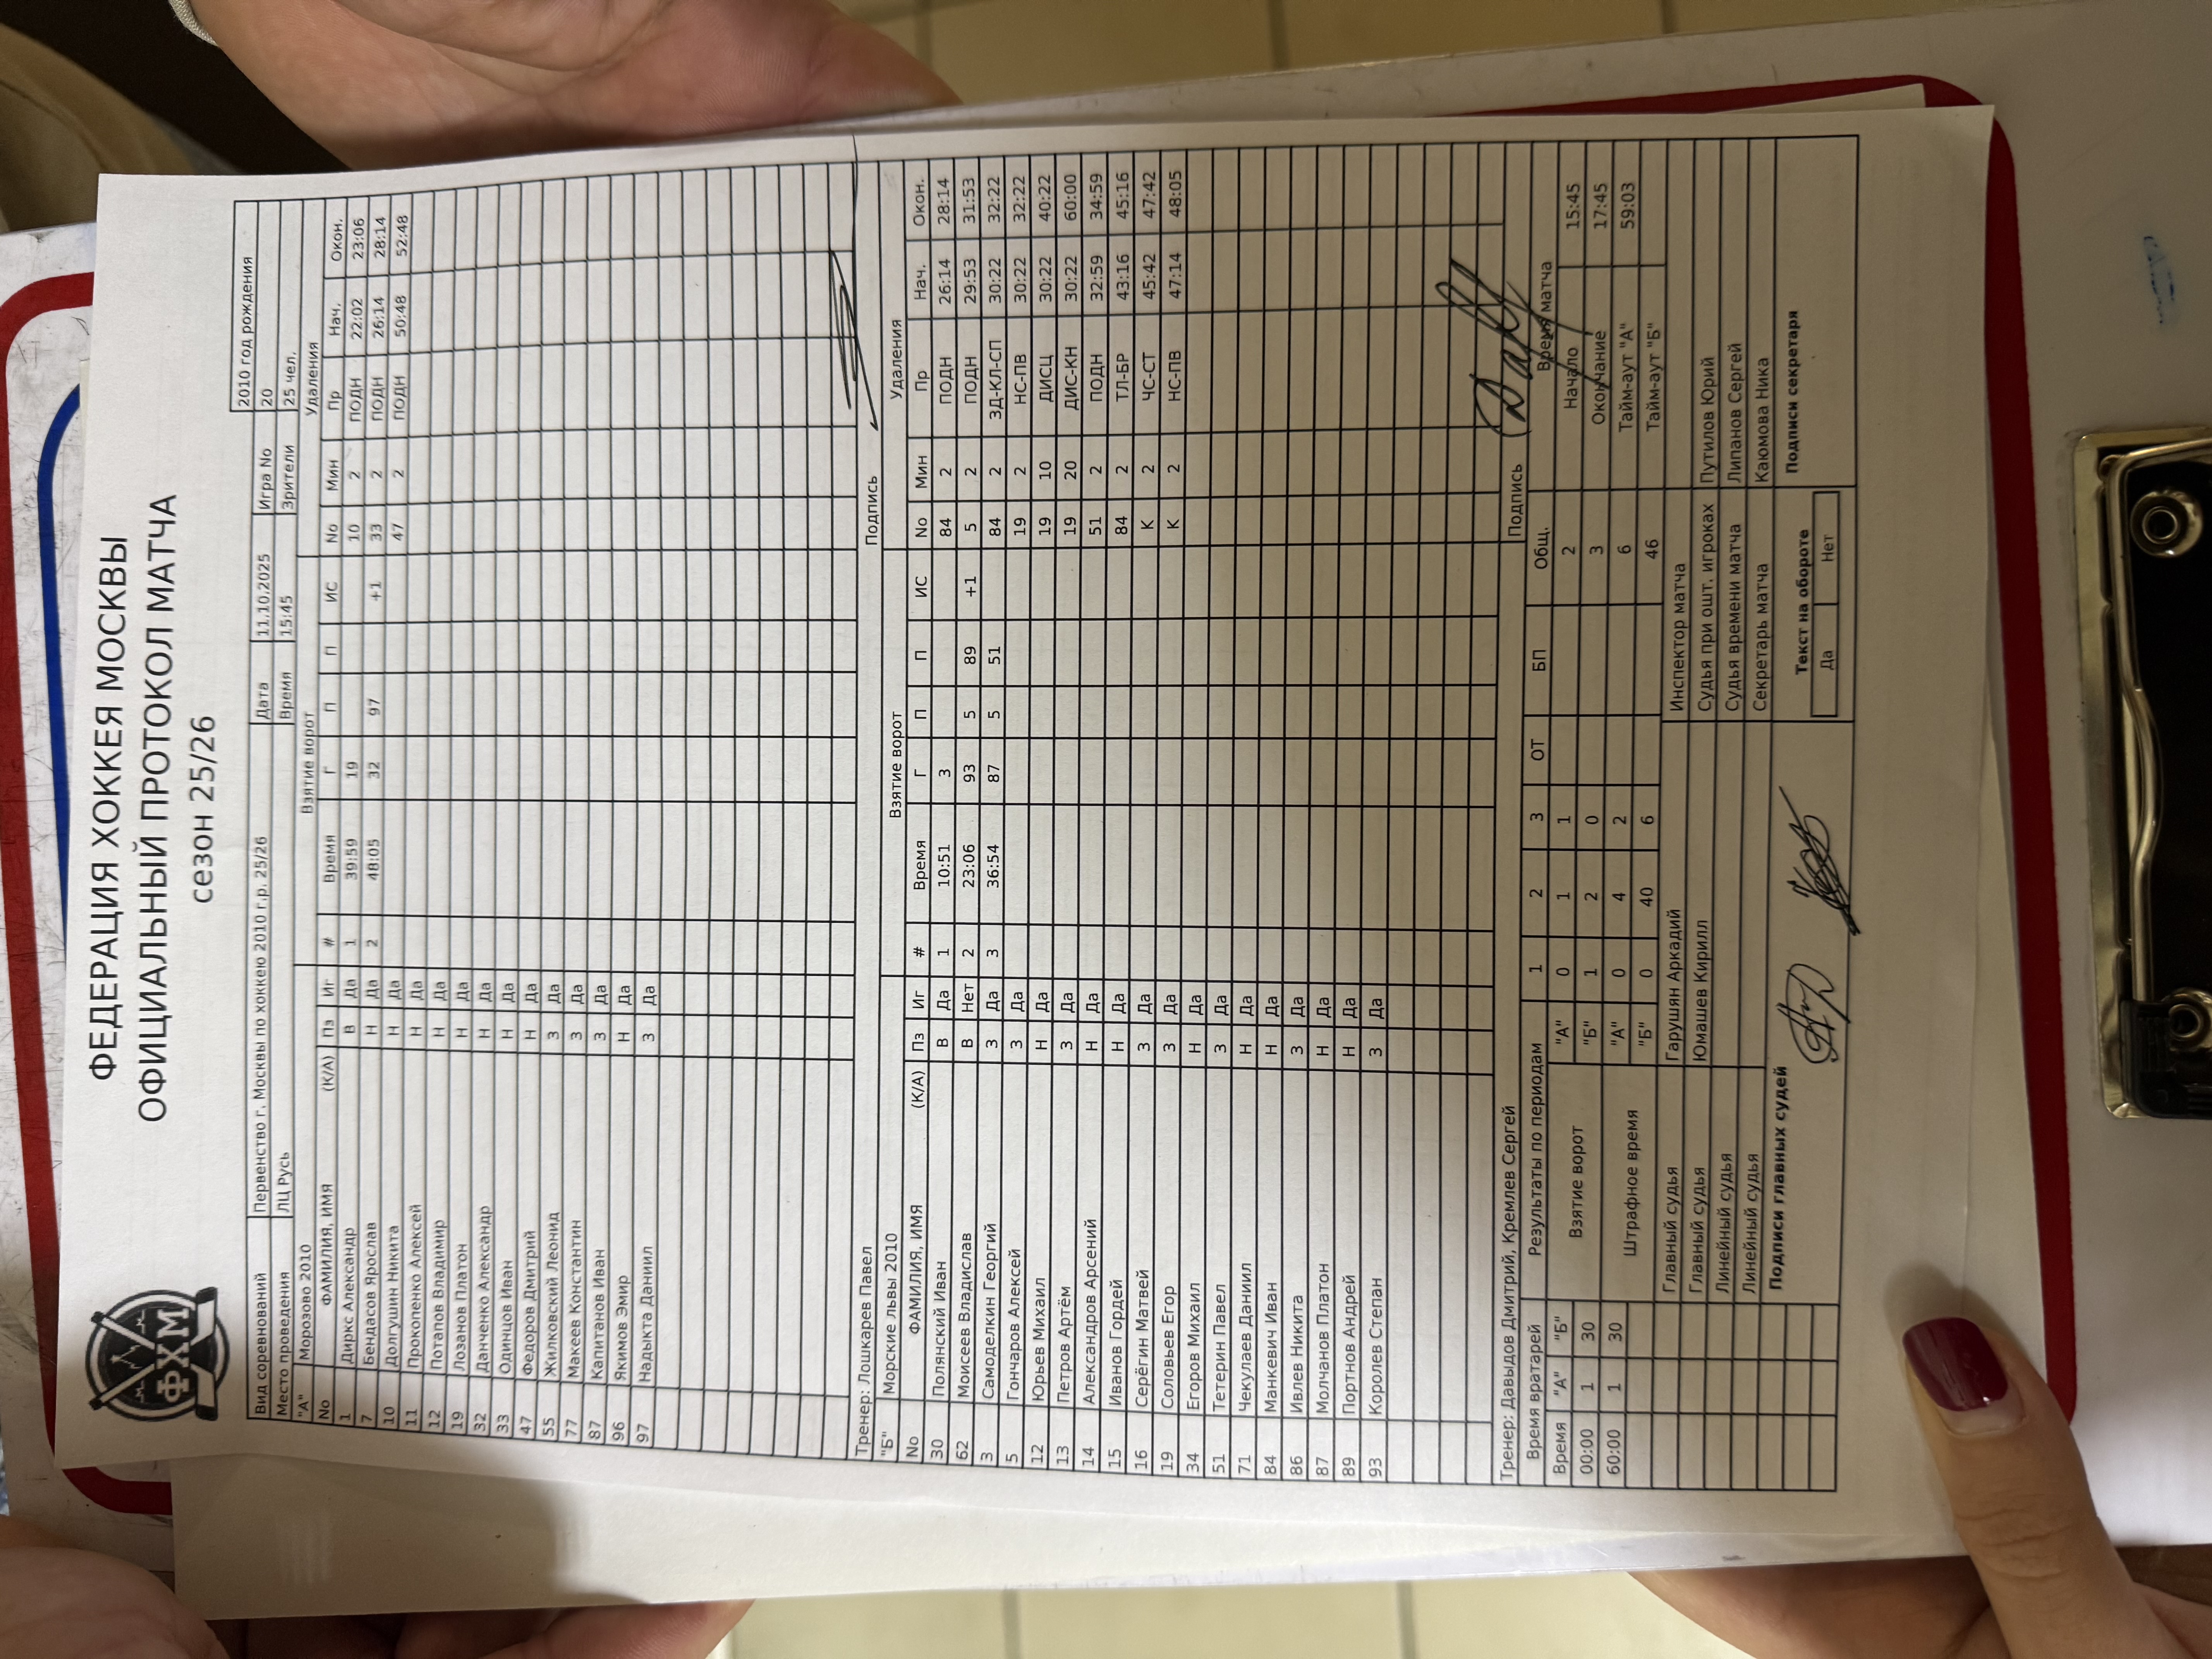 ФХМ
ФЕДЕРАЦИЯ ХОККЕЯ МОСКВЫ
ОФИЦИАЛЬНЫЙ ПРОТОКОЛ МАТЧА
сезон 25/26
2010 год рождения
Вид соревнований Первенство г. Москвы по хоккею 2010 г.р. 25/26 Дата 11.10.2025 Игра No 20
Место проведения ЛЦ Русь Время 15:45 Зрители 25 чел.
"А" Морозово 2010 Взятие ворот Удаления
No ФАМИЛИЯ, ИМЯ (К/А) Пз Иг # Время Г П П ИС No Мин Пр Нач. Окон.
1 Диркс Александр В Да 1 39:59 19 10 2 ПОДН 22:02 23:06
7 Бендасов Ярослав Н Да 2 48:05 32 97 +1 33 2 ПОДН 26:14 28:14
10 Долгушин Никита Н Да 47 2 ПОДН 50:48 52:48
11 Прокопенко Алексей Н Да
12 Потапов Владимир Н Да
19 Лозанов Платон Н Да
32 Данченко Александр Н Да
33 Одинцов Иван Н Да
47 Федоров Дмитрий Н Да
55 Жилковский Леонид З Да
77 Макеев Константин З Да
87 Капитанов Иван З Да
96 Якимов Эмир Н Да
97 Надыкта Даниил З Да
Тренер: Лошкарев Павел Подпись
"Б" Морские львы 2010 Взятие ворот Удаления
No ФАМИЛИЯ, ИМЯ (К/А) Пз Иг # Время Г П П ИС No Мин Пр Нач. Окон.
30 Полянский Иван В Да 1 10:51 3 84 2 ПОДН 26:14 28:14
62 Моисеев Владислав В Нет 2 23:06 93 5 89 +1 5 2 ПОДН 29:53 31:53
3 Самоделкин Георгий З Да 3 36:54 87 5 51 84 2 ЗД-КЛ-СП 30:22 32:22
5 Гончаров Алексей З Да 19 2 НС-ПВ 30:22 32:22
12 Юрьев Михаил Н Да 19 10 ДИСЦ 30:22 40:22
13 Петров Артём З Да 19 20 ДИС-КН 30:22 60:00
14 Александров Арсений Н Да 51 2 ПОДН 32:59 34:59
15 Иванов Гордей Н Да 84 2 ТЛ-БР 43:16 45:16
16 Серёгин Матвей З Да К 2 ЧС-СТ 45:42 47:42
19 Соловьев Егор З Да К 2 НС-ПВ 47:14 48:05
34 Егоров Михаил Н Да
51 Тетерин Павел З Да
71 Чекулаев Даниил Н Да
84 Манкевич Иван Н Да
86 Ивлев Никита З Да
87 Молчанов Платон Н Да
89 Портнов Андрей Н Да
93 Королев Степан З Да
Тренер: Давыдов Дмитрий, Кремлев Сергей Подпись
Время вратарей Результаты по периодам 1 2 3 ОТ БП Общ. Время матча
Время "А" "Б" Взятие ворот "А" 0 1 1 2 Начало 15:45
00:00 1 30 "Б" 1 2 0 3 Окончание 17:45
60:00 1 30 Штрафное время "А" 0 4 2 6 Тайм-аут "А" 59:03
"Б" 0 40 6 46 Тайм-аут "Б"
Главный судья Гарушян Аркадий Инспектор матча
Главный судья Юмашев Кирилл Судья при ошт. игроках Путилов Юрий
Линейный судья Судья времени матча Липанов Сергей
Линейный судья Секретарь матча Каюмова Ника
Подписи главных судей Текст на обороте Подписи секретаря
Да Нет